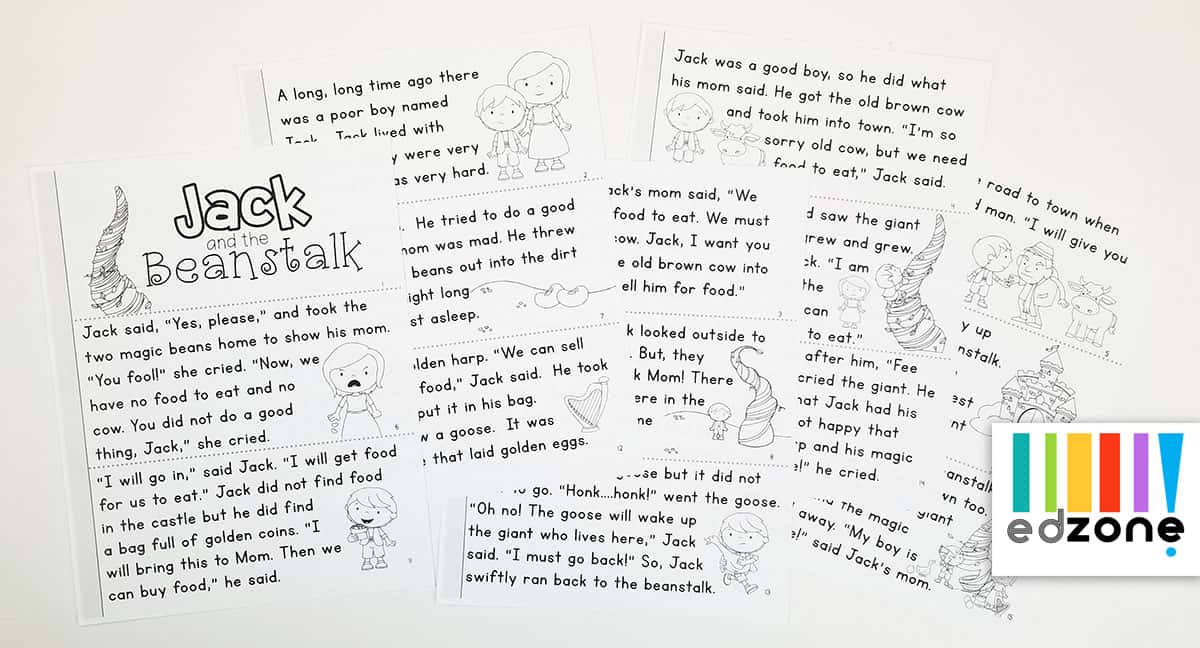 A long, long time ago there
was a poor boy named
Jack. Jack lived with
y were very
as very hard.
2
Jack was a good boy, so he did what
his mom said. He got the old brown cow
and took him into town. "I'm so
sorry old cow, but we need
food to eat," Jack said.
4
Jack
and the
Beanstalk
1
Jack said, "Yes, please," and took the
two magic beans home to show his mom.
"You fool!" she cried. "Now, we
have no food to eat and no
cow. You did not do a good
thing, Jack," she cried.
6
"I will go in," said Jack. "I will get food
for us to eat." Jack did not find food
in the castle but he did find
a bag full of golden coins. "I
will bring this to Mom. Then we
can buy food," he said.
He tried to do a good
mom was mad. He threw
beans out into the dirt
ight long
st asleep.
7
olden harp. "We can sell
food," Jack said. He took
put it in his bag.
w a goose. It was
that laid golden eggs.
12
ack's mom said, "We
food to eat. We must
cow. Jack, I want you
e old brown cow into
ell him for food."
3
k looked outside to
. But, they
k Mom! There
ere in the
ne
8
ose but it did not
to go. "Honk....honk!" went the goose.
"Oh no! The goose will wake up
the giant who lives here," Jack
said. "I must go back!" So, Jack
swiftly ran back to the beanstalk.
13
d saw the giant
grew and grew.
ck. "I am
the
can
to eat."
after him, "Fee
cried the giant. He
hat Jack had his
ot happy that
p and his magic
e!" he cried.
14
road to town when
d man. "I will give you
5
y up
nstalk.
est
nt
anstalk
wn too.
giant
nd the magic
away. "My boy is
e!" said Jack's mom.
15
edzone